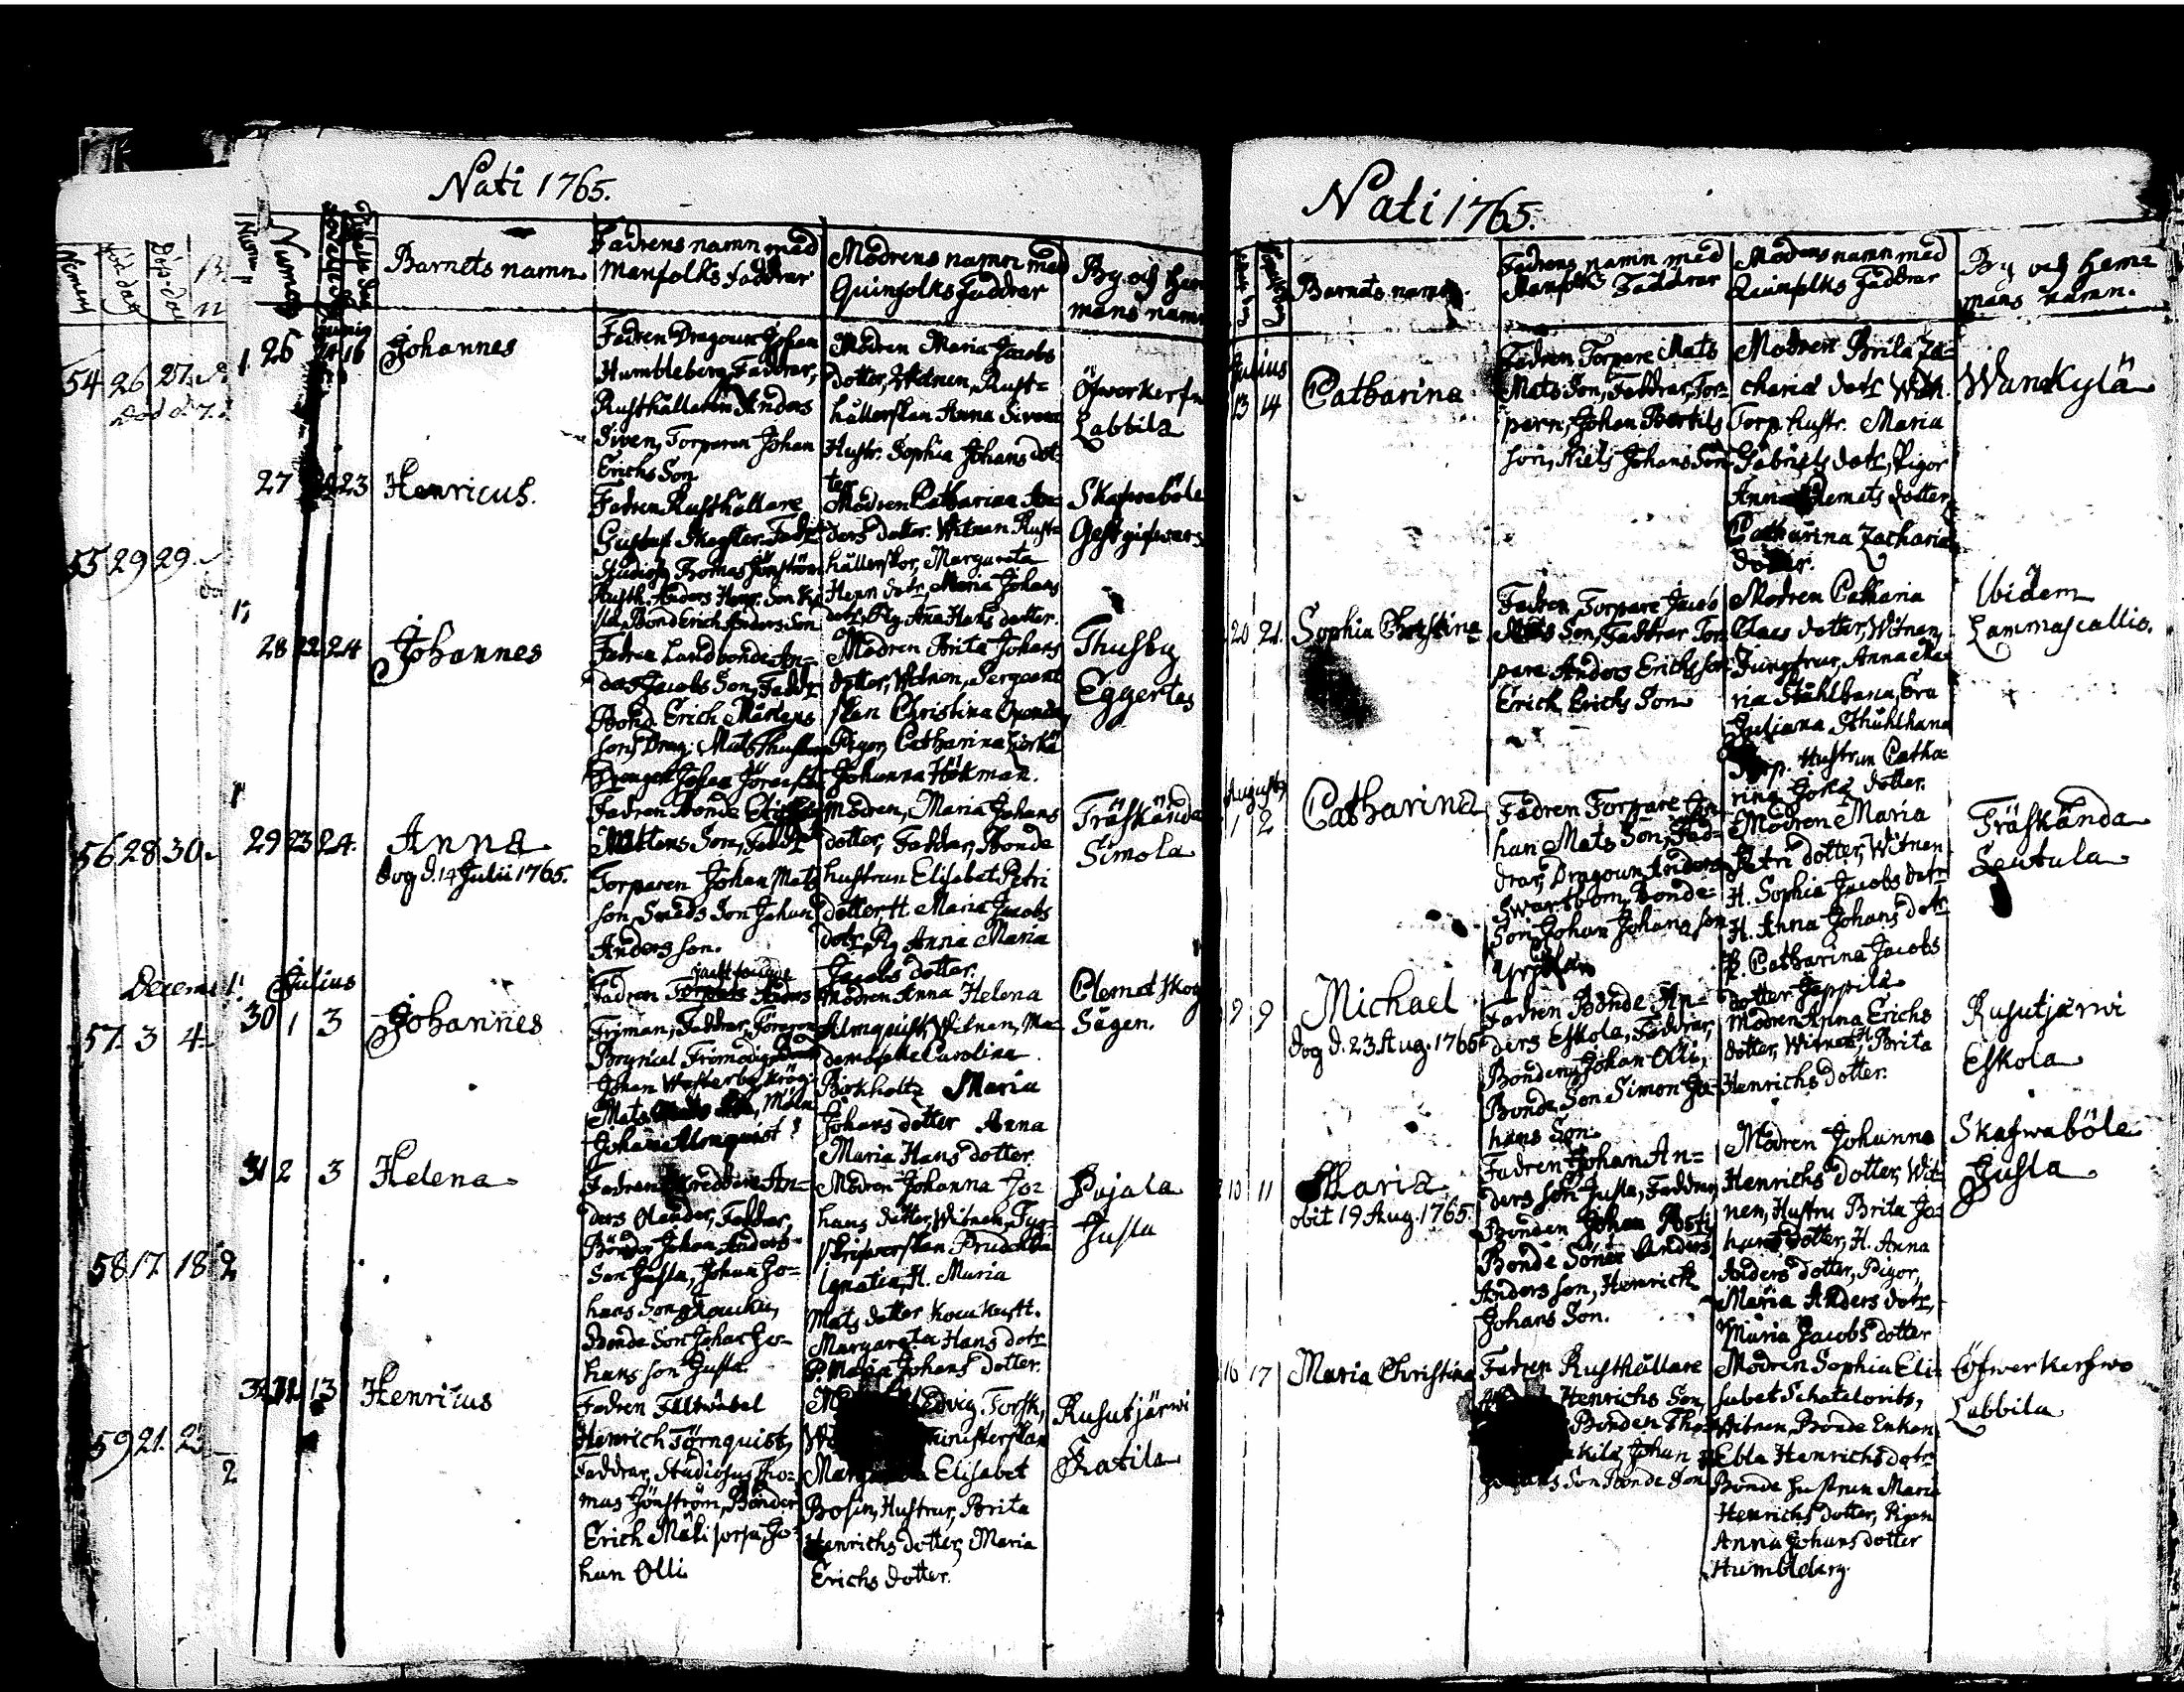 Nati 1765.
Barnets namn
Fadrens namn med
Manfolks faddrar
Modrens namn med
Quinfolks Faddrar
By och hem
mans namn
Junius
26 16 Johannes
Fadren Dragoun Johan
Humbleberg, Faddrar,
Rusthållaren Anders
Siven, Torparen Johan
Erichs Son
Modren Maria Jacobs
dotter, Witnen, Rust=
hållerskan Anna Siven
Hustr. Sophia Johans dot=
ter
Öfwerkerfw
Labbila
27 23 Henricus.
Fadren Rusthållare
Gustaf
Studios. Thomas
Rusth. Anders Henr. Son
Bond Erich Anders Son
Modren Catharina An=
ders dotter. Witnen Rust=
hållerskor, Margareta
Henr dotr, Maria Johans
dotr, Pig. Anna Hans dotter.
Skafwaböle
Gestgifwars
28 22 24 Johannes
Fadren Landbonde An=
ders Jacobs Son, Faddr
Bond. Erich Mårtens
son, Drag. Mats
Drengen Johan
Modren Brita Johans
dotter, Witnen, Sergeant
skan Christina
Pigor, Catharina
Johanna Hökman.
Thusby
Eggertes
29 23 24. Anna
Dog d. 14 Julii 1765.
Fadren Bonde
Mattens Son, Faddr
Torparen Johan Mats
son, Smeds Son Johan
Anders son.
Modren, Maria Johans
dotter, Faddrar, Bonde
hustrun Elisabet Petri
dotter, H. Maria Jacobs
dotr, Pig Anna Maria
Jacobs dotter.
Träskända
Simola
Julius
30 1 3 Johannes
Fadren Anders
Friman, Faddrar,
Brynicel Frimodig,
Johan Westerby,
Mats
Johan Almquist
Modren Anna Helena
Almquist, Witnen, Ma=
demoiselle Carolina
Birkholtz Maria
Johans dotter Anna
Maria Hans dotter.
Clemetskog
Sågen.
31 2 3 Helena
Fadren An=
ders Olander, Faddrar,
Bönder Johan Anders=
Son Jusla, Johan Jo=
hans Son
Bonde Son Johan Jo=
hans son Jusla.
Modren Johanna Jo=
hans dotter, Witnen,
skrifwerskan
Ignatia, H. Maria
Mats dotter
Margareta Hans dotr
P. Maria Johans dotter.
Pajala
Jusla
13 Henricus
Fadren Fältwäbel
Henrich Törnquist,
Faddrar, Studiosus Tho=
mas Bönder
Erich Mälisorpa, Jo=
han Olli
Torsk,
Elisabet
Bosin, Hustrur, Brita
Henrichs dotter, Maria
Erichs dotter.
Rusutjärwi
Skatila
54 26 27
55 29 29.
56 28 30.
Decem
57. 3 4
58 17 18
59 21. 23
Nati 1765.
Barnets namn.
Fadrens namn med
Manfolks Faddrar
Modrens namn med
Quinfolks Faddrar
By och hem=
mans namn.
Julius
13 14 Catharina
Fadren Torpare Mats
Mats Son, Faddrar, Tor=
parn, Johan Bertils
son, Niels Johans Son
Modren Brita Za=
charia dotr Witn.
Torp. hustr. Maria
Gabriels dotr, Pigor
Anna Clemets dotter,
Catharina Zacharia
dotter.
Wanskylä
20 21. Sophia Christina
Fadren, Torpare Jacob
Mats Son, Faddrar Tor
pare Anders Erichs son
Erich Erichs Son
Modren Catharia
Claes dotter, Witnen,
Jungfrur, Anna Ma=
ria Ståhlhana,
Juliana Ståhlhana
Torp. Hustrun Catha=
rina dotter.
Ibidem
Lammascallio.
Augusti
1 2 Catharina
Fadren Torpare Jo
han Mats Son, Fad=
drar, Dragoun Anders
Swartbom, Bonde=
Son, Johan Johans son
Modren Maria
Petri dotter, Witnen
H. Sophia Jacobs dotr
H. Anna Johans dotr
P. Catharina Jacobs
dotter Jeppila
Träskända
Seutula
9 9 Michael
Dog d. 23 Aug. 1765
Fadren Bonde An=
ders Eskola, Faddrar,
Bonden, Johan Olli,
Bonde Son Simon Jo=
hans Son.
Modren Anna Erichs
dotter, Witnen, H. Brita
Henrichs dotter.
Rusutjärwi
Eskola
10 11 Maria
obit 19 Aug. 1765.
Fadren Johan An=
ders son Jusla, Faddrar,
Bonden Johan
Bonde Söner Anders
Anders son, Henrich
Johans Son.
Modren Johanna
Henrichs dotter, Wit=
nen, Hustru Brita Jo=
hans dotter, H. Anna
Anders dotter, Pigor,
Maria Anders dotr,
Maria Jacobs dotter
Skafwaböle
Jusla
16 17 Maria Christina
Fadren Rusthållare
Henrichs Son
Bonden
Johan
Son Bonde Son
Modren Sophia Eli=
sabet Schatelovits,
Witnen, Bonde Enkan
Ebla Henrichs dotr
Bonde hustrun Maria
Henrichs dotter, Pigan
Anna Johans dotter
Humbleberg.
Öfwerkerfwo
Labbila